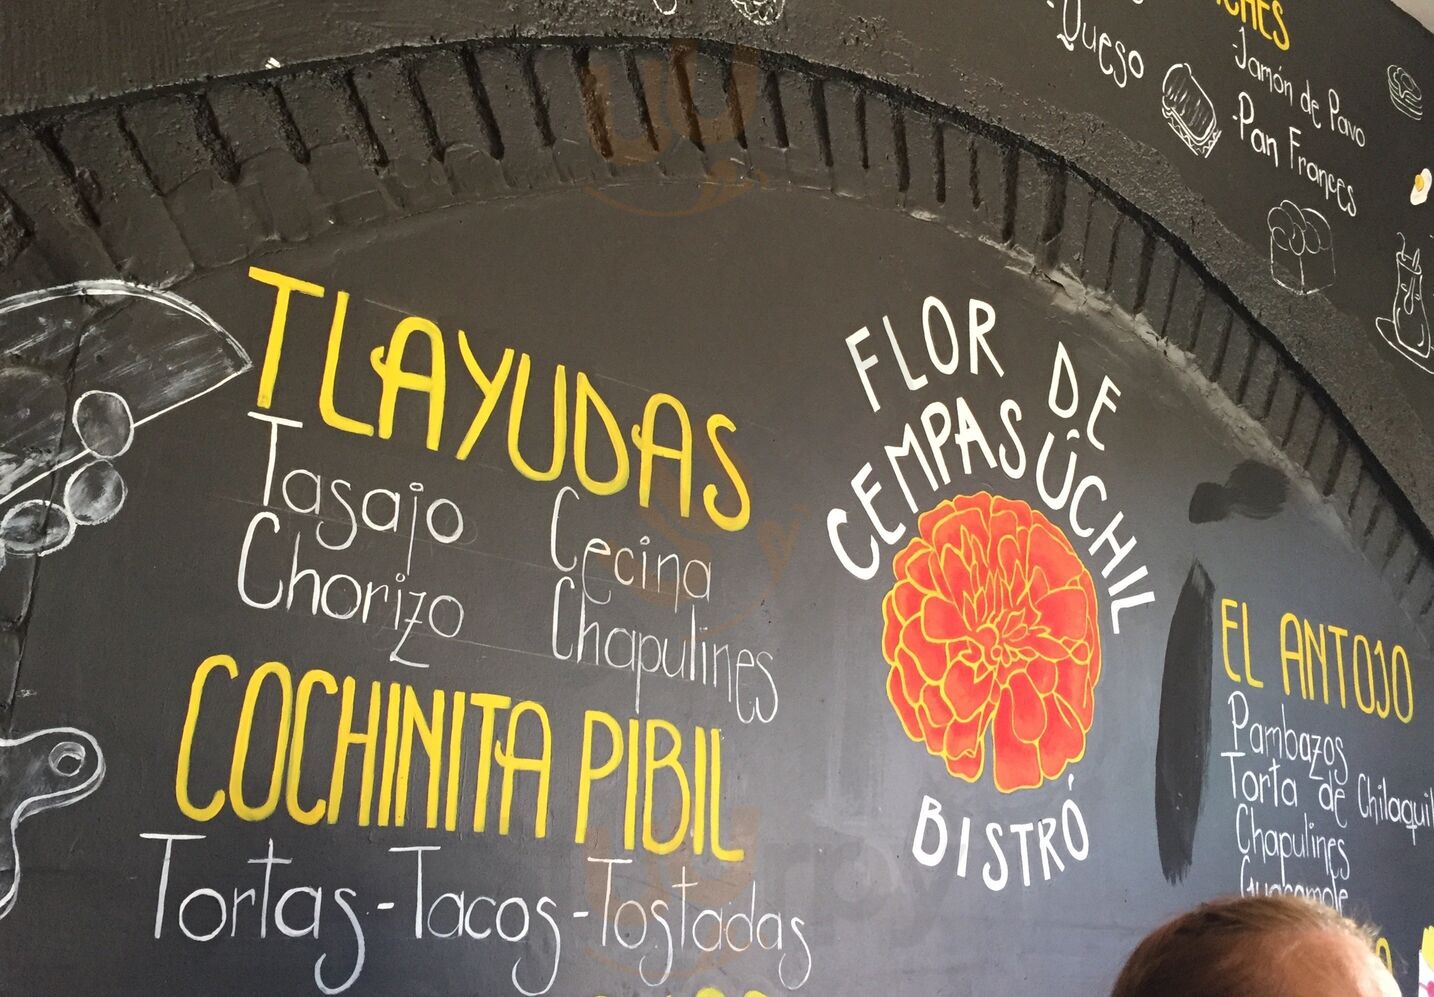 Queso
-Jamón de Pavo
-Pan Frances
TLAYUDAS
Tasajo Cecina
Chorizo Chapulines
COCHINITA PIBIL
Tortas-Tacos-Tostadas
FLOR DE
CEMPASÛCHIL
BISTRÓ
EL ANTOJO
Pambazos
Torta de Chilaquil
Chapulines
Guacamole